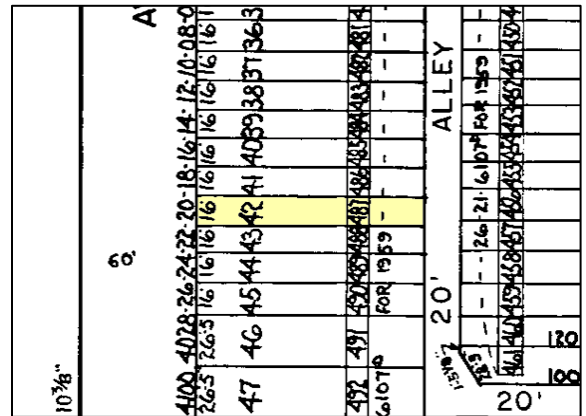 A
60'
10⅜"
4100 4028·26·24·22·20·18·16·14·12·10·08·0
26·5 26·5 16 16 16 16' 16 16 16 16 16 16 16
47 46 45 44 43 42 41 40 39 38 37 36 3
492 491 490 489 488 487 486 485 484 483 482 481 4
6107ᴰ FOR 1959
20' ALLEY
26-21 6107ᴰ FOR 1959
461 460 459 458 457 456 455 454 453 452 451 450
120
100
20'